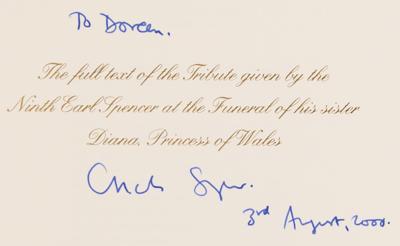 To Doreen.
The full text of the Tribute given by the
Ninth Earl Spencer at the Funeral of his sister
Diana, Princess of Wales
3rd August, 2000.